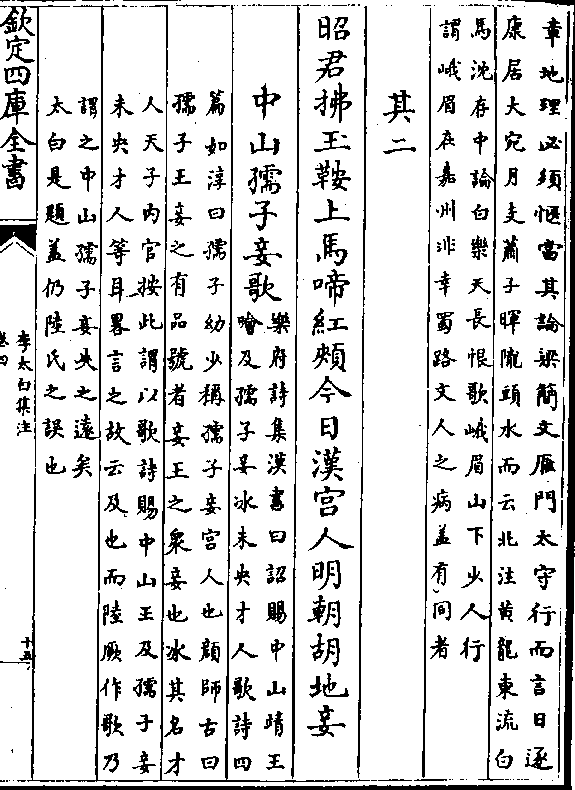 章地理必須愜當其論梁簡文鴈門太守行而言日逐
康居大宛月支蕭子暉隴頭水而云北注黄龍東流白
馬沈存中論白樂天長恨歌峨眉山下少人行
謂峨眉在嘉州非幸蜀路文人之病盖有同者
其二
昭君拂玉鞍上馬啼紅頰今日漢宫人明朝胡地妾
中山孺子妾歌
樂府詩集漢書曰詔賜中山靖王
噲及孺子妾冰未央才人歌詩四
篇如淳曰孺子幼少稱孺子妾宫人也顔師古曰
孺子王妾之有品號者妾王之衆妾也冰其名才
人天子内官按此謂以歌詩賜中山王及孺子妾
未央才人等耳畧言之故云及也而陸厥作歌乃
謂之中山孺子妾失之遠矣
太白是題盖仍陸氏之誤也
欽定四庫全書
李太白集注
卷四
十五